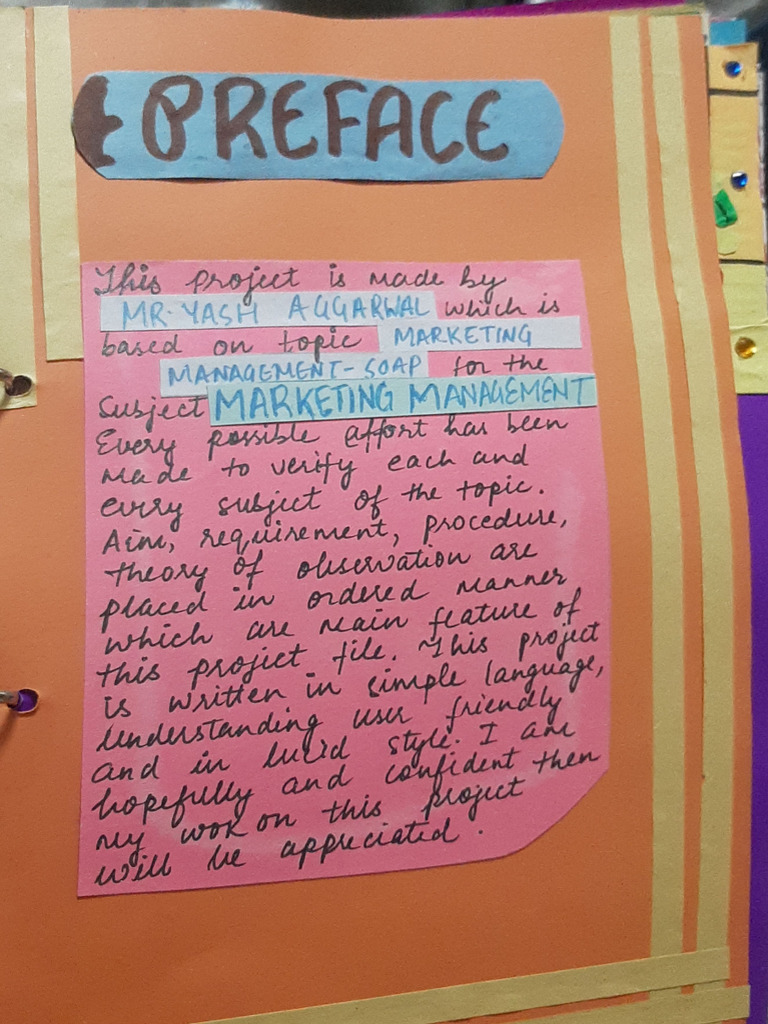 PREFACE
This project is made by
MR. YASH AGGARWAL which is
based on topic MARKETING
MANAGEMENT-SOAP for the
Subject MARKETING MANAGEMENT
Every possible affort has been
made to verify each and
every subject of the topic.
Aim, requirement, procedure,
theory of observation are
placed in ordered manner
which are main feature of
this project file. This project
is written in simple language,
understanding user friendly
and in lucid style. I am
hopefully and confident then
my wok on this project
will be appreciated.